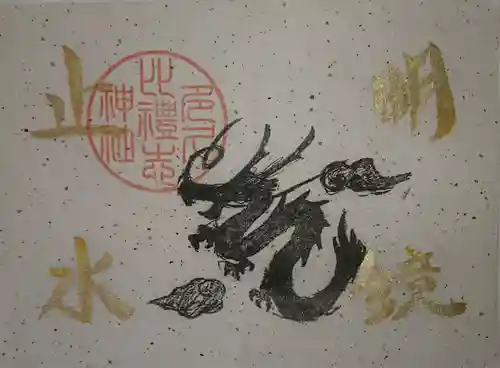 明鏡
止水
多久
比禮志
神社